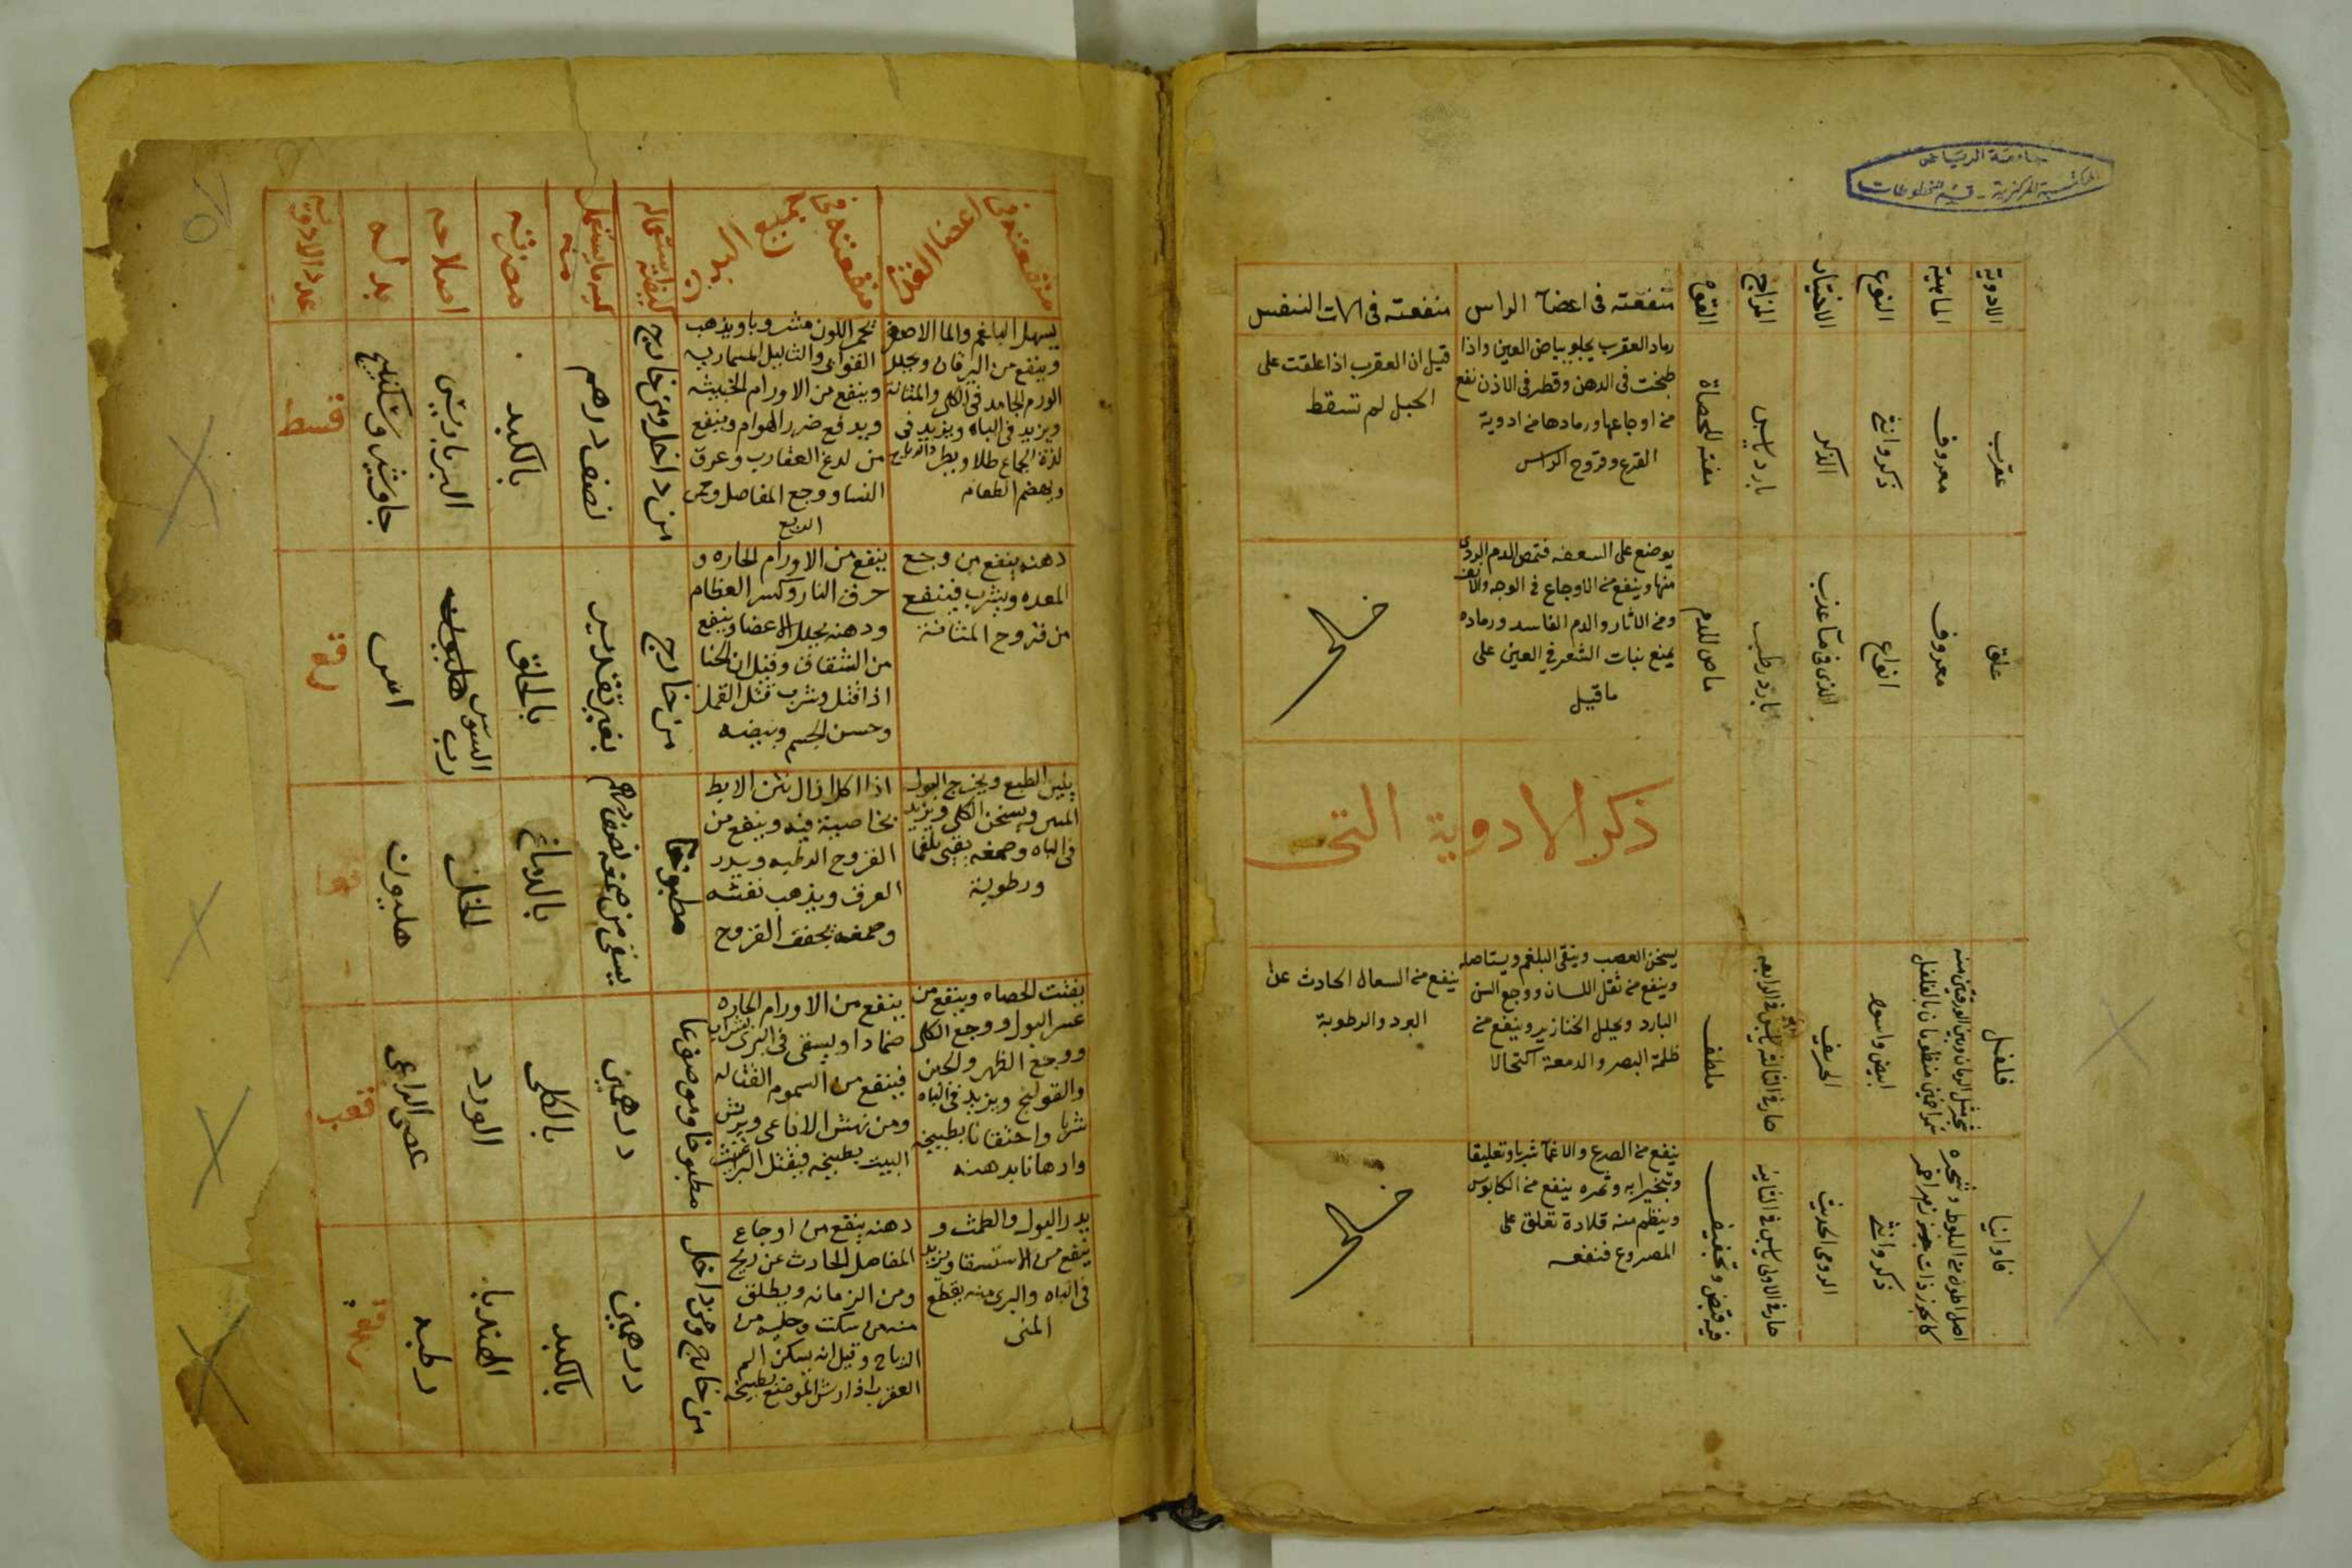 جامعة الرياض
المكتبة المركزية - قسم المخطوطات
الادوية
الماهية
النوع
الاختيار
المزاج
القوة
منفعته في اعضآ الراس
منفعته في الات النفس
عقرب
معروف
ذكر وانثى
الذكر
بارد يابس
مفتة للحصاة
رماد العقرب يجلو بياض العين واذا
طبخت في الدهن وقطر في الاذن نفع
من اوجاعها ورمادها من ادوية
القرع وقروح الراس
قيل ان العقرب اذا علقت على
الحبل لم تسقط
علق
معروف
انواع
الذي في مآ عذب
بارد رطب
ماص للدم
يوضع على السعفه فتمص الدم الردى
منها وينفع من الاوجاع في الوجه والانف
ومن الاثار والدم الفاسد ورماده
يمنع نبات الشعر في العين على
ما قيل
خلى
ذكر الادوية التى
فلفل
ابيض واسود
الحريف
حار في الثالثة يابس في الرابعه
ملطف
يسخن العصب وينقى البلغم ويستاصله
وينفع من ثقل اللسان ووجع السن
البارد ويحلل الخنازير وينفع من
ظلمة البصر والدمعة اكتحالا
ينفع من السعال الحادث عن
البرد والرطوبة
فاوانيا
ذكر وانثى
الرومى الحديث
حار في الاولى يابس في الثانية
فيه قبض وتجفيف
ينفع من الصرع والاغمآ شربا وتعليقا
وتبخيرا به وثمره ينفع من الكابوس
وينظم منه قلادة تعلق على
المصروع فنفعه
خلى
منفعته في اعضا الغذا
منفعته في جميع البدن
كيفية استعماله
كمية ما يستعمل منه
مضرته
اصلاحه
بدله
عدد الادوية
يسهل البلغم والما الاصفر
وينفع من اليرقان ويحلل
الورم الجامد في الكلى والمثانة
ويزيد في الباه ويزيد في
لذة الجماع طلا
ويهضم الطعام
يحمر اللون مشروبا ويذهب
القوابى والثاليل المسماريه
وينفع من الاورام الخبيثه
ويدفع ضرر الهوام وينفع
من لدغ العقارب وعرق
النسا ووجع المفاصل وحمى
الربع
من داخل ومن خارج
نصف درهم
بالكبد
البرباريس
جاوشير وسكبينج
قسط
دهنه ينفع من وجع
المعده ويشرب فينفع
من قروح المثانة
ينفع من الاورام الحاره و
حرق النار وكسر العظام
ودهنه يحلل الاعضا وينفع
من الشقاق وقيل ان الحنا
اذا فتل وشرب قتل القمل
وحسن الجسم وبيضه
من خارج
بغير تقدير
بالحلق
رب السوس
اس
يلين الطبع ويخرج البول
المنتن ويسخن الكلى ويزيد
في الباه وصمغه يقيى بلغما
ورطوبة
اذا اكل ازال نتن الابط
بخاصية فيه وينفع من
القروح الرطبه ويدر
العرق ويذهب نفثه
وصمغه يجفف القروح
مطبوخا
يسقى من صمغه نصف درهم
بالدماغ
الخل
هليون
يفتت الحصاه وينفع من
عسر البول ووجع الكلى
ووجع الظهر والجبن
والقولنج ويزيد في الباه
شربا واحتقانا بطبيخه
وادهانا بدهنه
ينفع من الاورام الحاره
ضمادا ويسقى في البزى بشراب
فينفع من السموم القتاله
ومن نهش الافاعى ويرش
البيت بطبيخه فيقتل البراغيث
مطبوخا وموضوعا
درهمين
بالكلى
الورد
عصى الراعى
قعب
يدر البول والطمث و
ينفع من الاستسقا ويزيد
في الباه والبرى منه يقطع
المنى
دهنه ينفع من اوجاع
المفاصل الحادث عن ريح
ومن الزمانه ويطلق
الرياح وقيل انه يسكن الم
العقرب اذا رش الموضع بطبيخه
من خارج ومن داخل
درهمين
بالكبد
الهندبا
رطبه